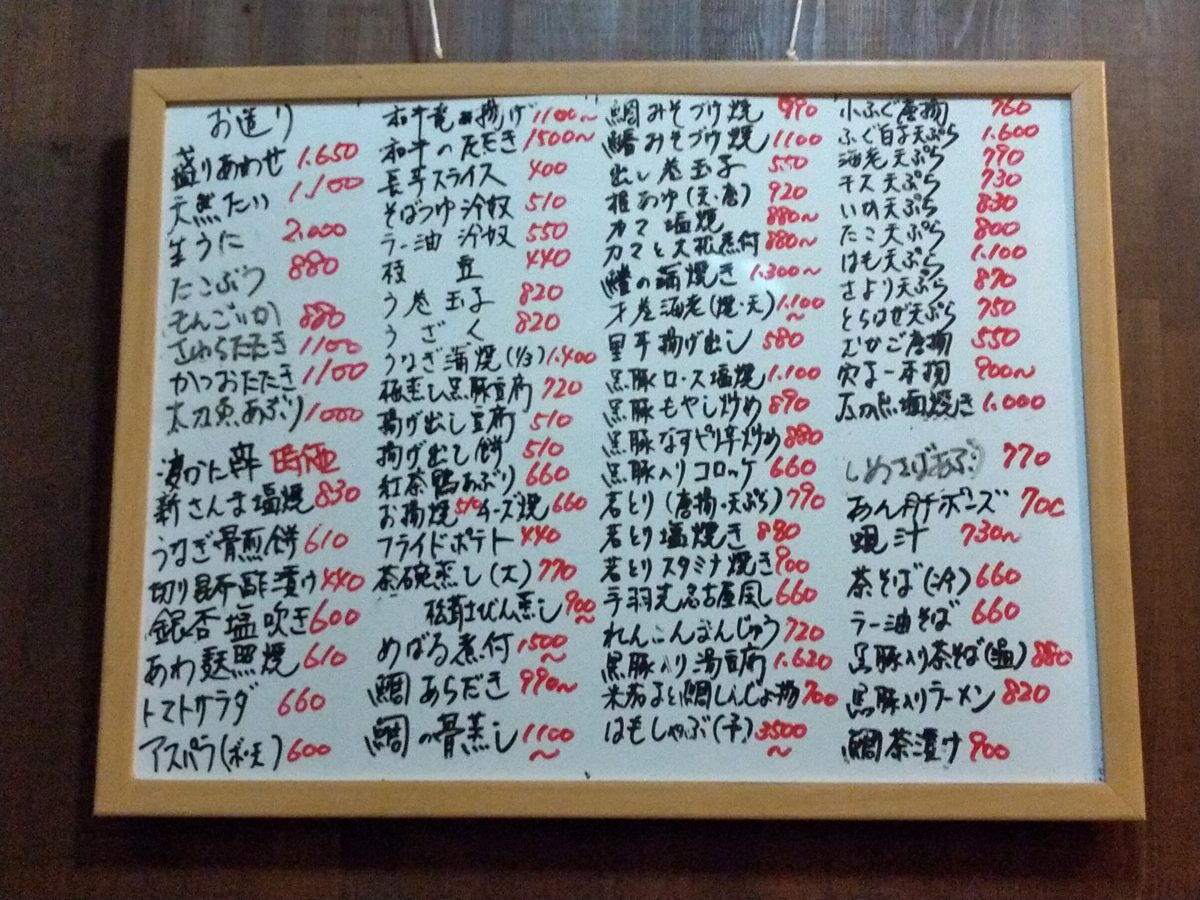 お造り
盛りあわせ 1.650
天然たい 1.100
生うに 2.000
たこぶつ 880
もんごいか 880
さわらたたき 1100
かつおたたき 1100
太刀魚あぶり 1000
渡かに 時価
新さんま塩焼 830
うなぎ骨煎餅 610
切り昆布酢漬け 440
銀杏塩吹き 600
あわ麩照焼 610
トマトサラダ 660
アスパラ(ボ・天) 600
和牛 揚げ 1100~
和牛のたたき 1500~
長芋スライス 400
そばつゆ冷奴 510
ラー油 冷奴 550
枝豆 440
う巻玉子 820
うざく 820
うなぎ蒲焼(1/3) 1.400
蒸し黒豚豆腐 720
揚げ出し豆腐 510
揚げ出し餅 510
紅茶鴨あぶり 660
お揚焼 510 チーズ焼 660
フライドポテト 440
茶碗蒸し(大) 770
松茸土びん蒸し 900~
めばる煮付 1500~
鯛あらだき 990~
鯛の骨蒸し 1100~
鯛みそづけ焼 990
みそづけ焼 1100
出し巻玉子 550
稚あゆ(天・唐) 920
カマ塩焼 880~
カマと大根煮付 880~
鱧の蒲焼き 1.300~
才巻海老(焼・天) 1.100~
里芋揚げ出し 580
黒豚ロース塩焼 1.100
黒豚もやし炒め 890
黒豚なすピリ辛炒め 880
黒豚入りコロッケ 660
若とり(唐揚・天ぷら) 790
若とり塩焼き 880
若とりスタミナ焼き 900
手羽先名古屋風 660
れんこんまんじゅう 720
黒豚入り湯豆腐 1.620
米茄子と鯛しんじょ揚 700
はもしゃぶ(予) 3500~
小ふぐ唐揚 760
ふぐ白子天ぷら 1.600
海老天ぷら 990
キス天ぷら 730
いか天ぷら 830
たこ天ぷら 800
はも天ぷら 1.100
さより天ぷら 870
とらはぜ天ぷら 750
むかご唐揚 550
穴子一本揚 900~
太刀魚塩焼き 1.000
しめさばあぶり 770
あん肝ポン酢 700
蜆汁 730~
茶そば(冷) 660
ラー油そば 660
黒豚入り茶そば(温) 880
黒豚入りラーメン 820
鯛茶漬け 900